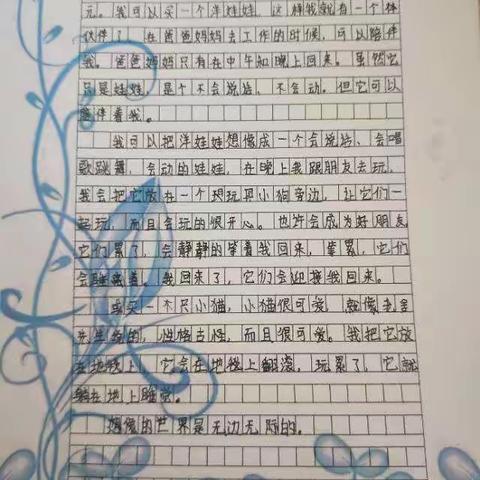 元。我可以买一个洋娃娃，这样我就有一个伙
伙伴了，在爸爸妈妈去工作的时候，可以陪伴
我。爸爸妈妈只有在中午和晚上回来。虽然它
只是娃娃，是个不会说话、不会动。但它可以
陪伴着我。
我可以把洋娃娃想像成一个会说话、会唱
歌跳舞，会动的娃娃，在晚上我跟朋友去玩，
我会把它放在一个玩具小狗旁边，让它们一
起玩，而且会玩的很开心。也许会成为好朋友
它们累了，会静静的等着我回来，等累，它们
会睡着。我回来了，它们会迎接我回来。
或买一个只小猫，小猫很可爱，就像老舍
先生的，性格古怪，而且很可爱。我把它放
在地毯上，它会在地毯上翻滚，玩累了，它就
躺在地上睡觉。
想像的世界是无边无际的。